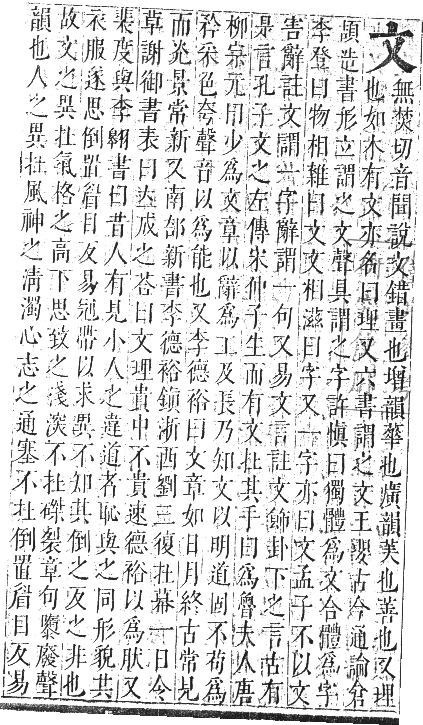 文 無焚切音聞說文錯畫也增韻華也廣韻美也善也又理
也如木有文亦名曰理又六書謂之文王嬰古今通論倉
頡造書形立謂之文聲具謂之字許慎曰獨體爲文合體爲字
李登曰物相雜曰文文相滋曰字又一字亦曰文孟子不以文
害辭註文謂一字辭謂一句又易文言註文飾卦下之言古有
是言孔子文之左傳宋仲子生而有文在其手曰爲魯夫人唐
柳宗元曰少爲文章以辭爲工及長乃知文以明道固不苟爲
矜采色夸聲音以爲能也又李德裕曰文章如日月終古常見
而光景常新又南部新書李德裕鎮浙西劉三復在幕一日令
草謝御書表曰立成之荅曰文理貴中不貴速德裕以爲然又
裴度與李翱書曰昔人有見小人之違道者恥與之同形貌共
衣服遂思倒置眉目反易冠帶以求異不知其倒之反之非也
故文之異在氣格之高下思致之淺深不在磔裂章句隳廢聲
韻也人之異在風神之清濁心志之通塞不在倒置眉目反易